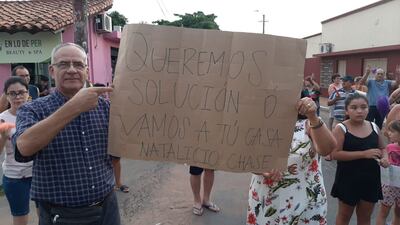 EN LO DE PER
BEAUTY & SPA
QUEREMOS
SOLUCIÓN O
VAMOS A TÚ CASA
NATALICIO CHASE